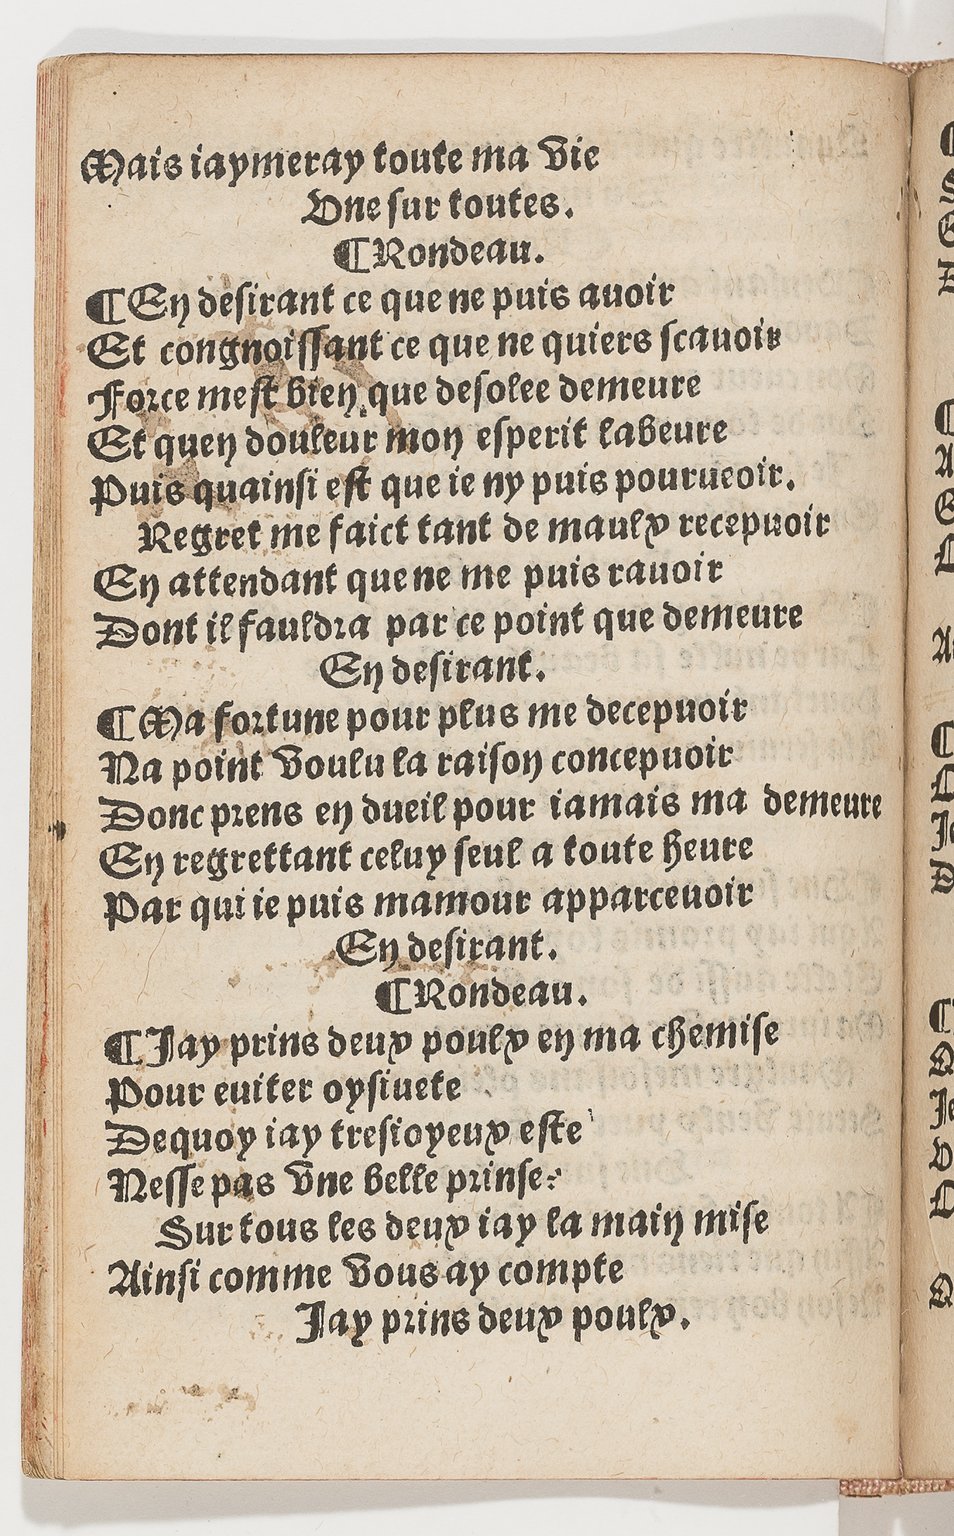 Mais iaymeray toute ma vie
Vne sur toutes.
¶Rondeau.
¶En desirant ce que ne puis auoir
Et congnoissant ce que ne quiers scauoir
Force mest bien que desolee demeure
Et quen douleur mon esperit labeure
Puis quainsi est que ie ny puis pourueoir.
Regret me faict tant de maulx recepuoir
En attendant que ne me puis rauoir
Dont il fauldra par ce point que demeure
En desirant.
¶Ma fortune pour plus me decepuoir
Na point voulu la raison concepuoir
Donc prens en dueil pour iamais ma demeure
En regrettant celuy seul a toute heure
Par qui ie puis mamour apparceuoir
En desirant.
¶Rondeau.
¶Jay prins deux poulx en ma chemise
Pour euiter oysiuete
Dequoy iay tresioyeux este
Nesse pas vne belle prinse?
Sur tous les deux iay la main mise
Ainsi comme vous ay compte
Jay prins deux poulx.